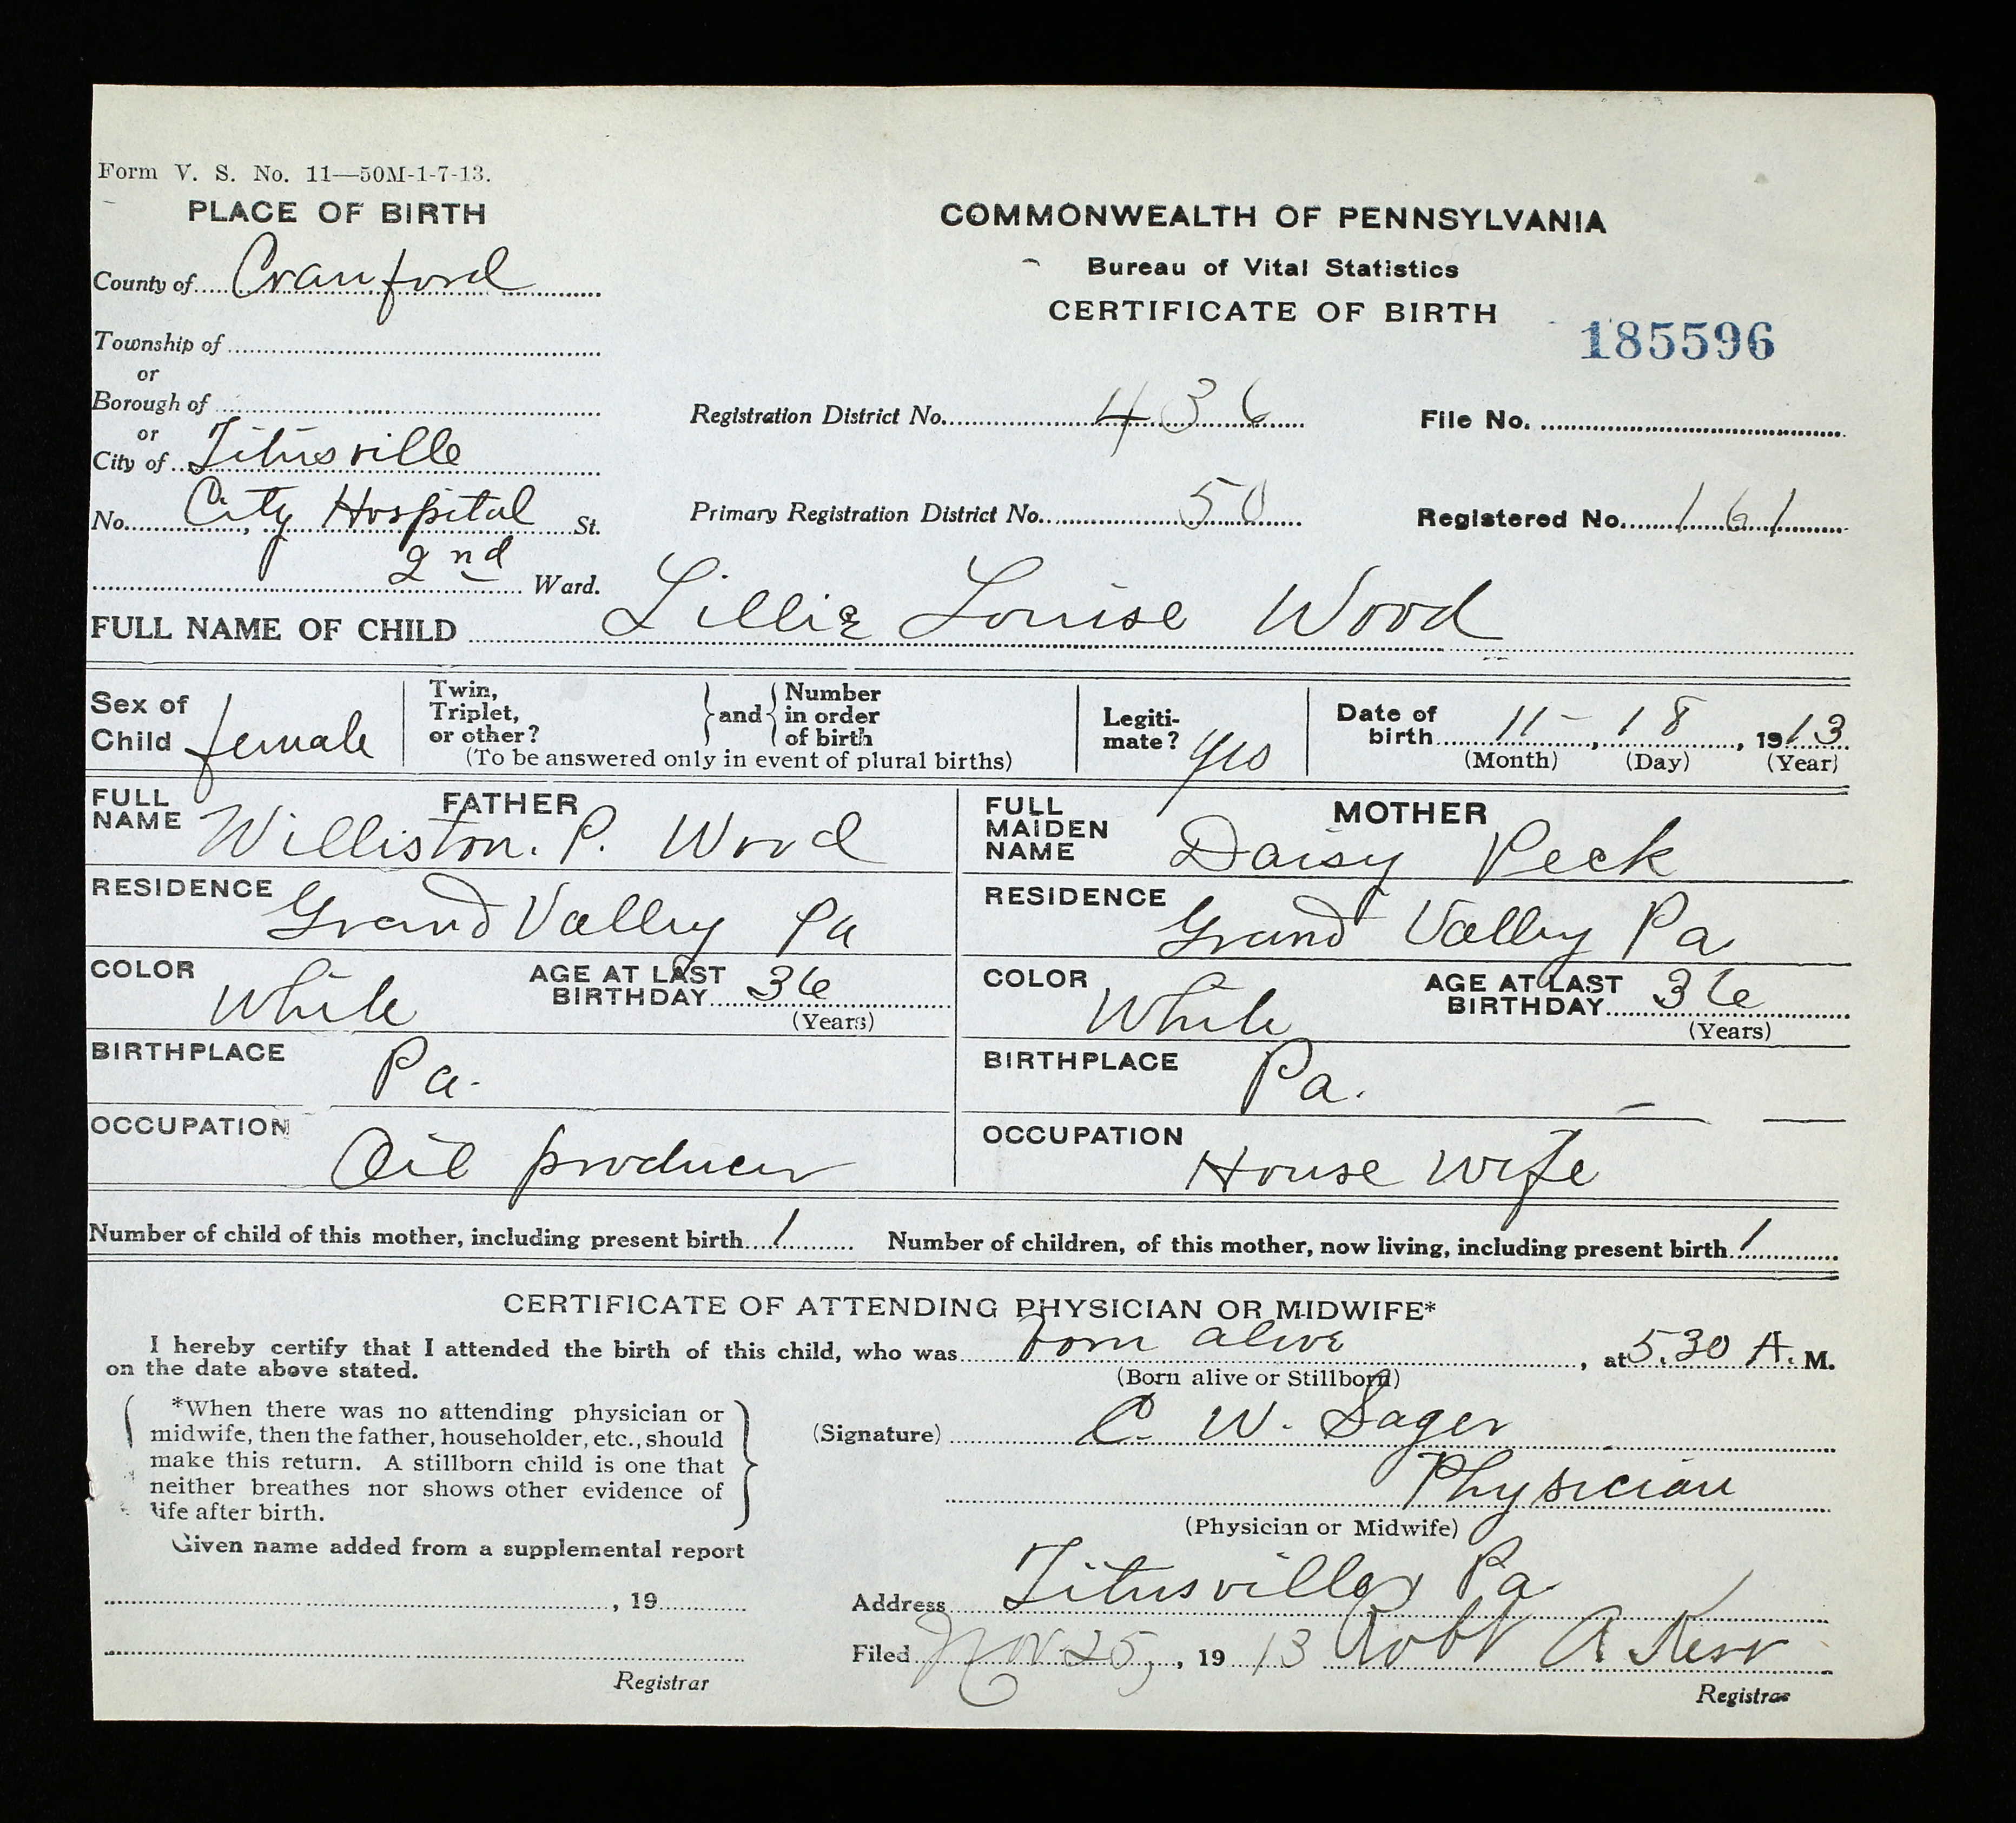 Form V. S. No. 11—50M-1-7-13.
PLACE OF BIRTH
County of Crawford
Township of
or
Borough of
or
City of Titusville
No. City Hospital St.
2nd Ward.
COMMONWEALTH OF PENNSYLVANIA
Bureau of Vital Statistics
CERTIFICATE OF BIRTH
185596
Registration District No. 436
File No.
Primary Registration District No. 50
Registered No. 161
FULL NAME OF CHILD Lillie Louise Wood
Sex of Child female
Twin, Triplet, or other?
and
Number in order of birth
(To be answered only in event of plural births)
Legiti-mate? yes
Date of birth 11 - , 18 , 1913
(Month) (Day) (Year)
FATHER
FULL NAME Williston. P. Wood
RESIDENCE Grand Valley Pa
COLOR White
AGE AT LAST BIRTHDAY 36
(Years)
BIRTHPLACE Pa.
OCCUPATION Oil producer
MOTHER
FULL MAIDEN NAME Daisy Peck
RESIDENCE Grand Valley Pa
COLOR White
AGE AT LAST BIRTHDAY 36
(Years)
BIRTHPLACE Pa.
OCCUPATION House wife
Number of child of this mother, including present birth 1
Number of children, of this mother, now living, including present birth 1
CERTIFICATE OF ATTENDING PHYSICIAN OR MIDWIFE*
I hereby certify that I attended the birth of this child, who was born alive , at 5.30 A. M.
on the date above stated.
(Born alive or Stillborn)
*When there was no attending physician or
midwife, then the father, householder, etc., should
make this return. A stillborn child is one that
neither breathes nor shows other evidence of
life after birth.
(Signature) C. W. Sager
Physician
(Physician or Midwife)
Given name added from a supplemental report
, 19
Registrar
Address Titusville Pa
Filed Nov 25, , 1913 Robt A Kerr
Registrar